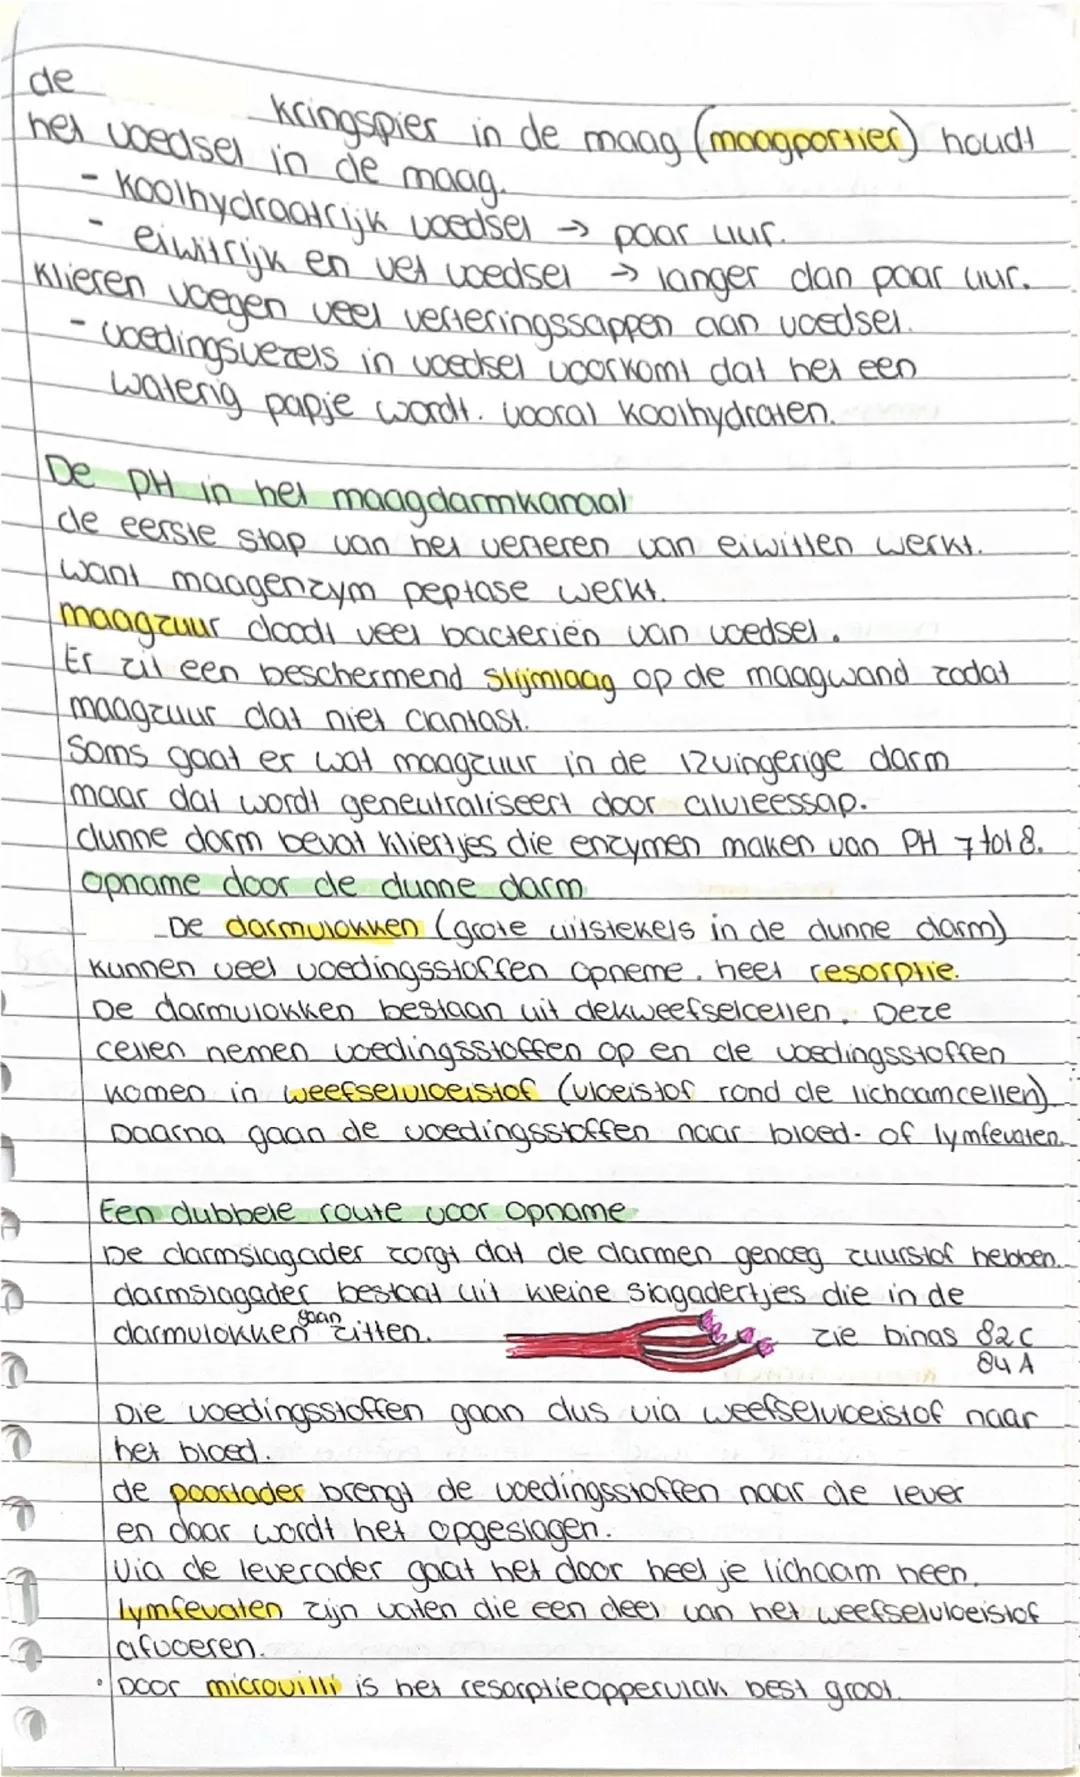 de
kringspier in de maag (maagportier) houdt
het voedsel in de maag.
- Koolhydraatrijk voedsel → paar uur.
- eiwitrijk en vet voedsel → langer dan paar uur.
Klieren voegen veel verteringssappen aan voedsel.
- voedingsvezels in voedsel voorkomt dat het een
waterig papje wordt. vooral koolhydraten.
De PH in het maagdarmkanaal
de eerste stap van het verteren van eiwitten werkt.
want maagenzym peptase werkt.
maagzuur doodt veel bacteriën van voedsel.
Er zit een beschermend slijmlaag op de maagwand zodat
maagzuur dat niet aantast.
Soms gaat er wat maagzuur in de 12vingerige darm
maar dat wordt geneutraliseert door alvleessap.
dunne darm bevat kliertjes die enzymen maken van PH 7 tot 8.
opname door de dunne darm
De darmvlokken (grote uitstekels in de dunne darm)
kunnen veel voedingsstoffen opneme. heet resorptie.
De darmvlokken bestaan uit dekweefselcellen. Deze
cellen nemen voedingsstoffen op en de voedingsstoffen
komen in weefselvloeistof (vloeistof rond de lichaamcellen)
Daarna gaan de voedingsstoffen naar bloed- of lymfevaten.
Een dubbele route voor opname
De darmslagader zorgt dat de darmen genoeg zuurstof hebben.
darmslagader bestaat uit kleine slagadertjes die in de
darmvlokken gaan zitten. zie binas 82C
84A
Die voedingsstoffen gaan dus via weefselvloeistof naar
het bloed.
de poortader brengt de voedingsstoffen naar de lever
en daar wordt het opgeslagen.
Via de leverader gaat het door heel je lichaam heen.
Lymfevaten zijn vaten die een deel van het weefselvloeistof
afvoeren.
• Door microvilli is het resorptieoppervlak best groot.